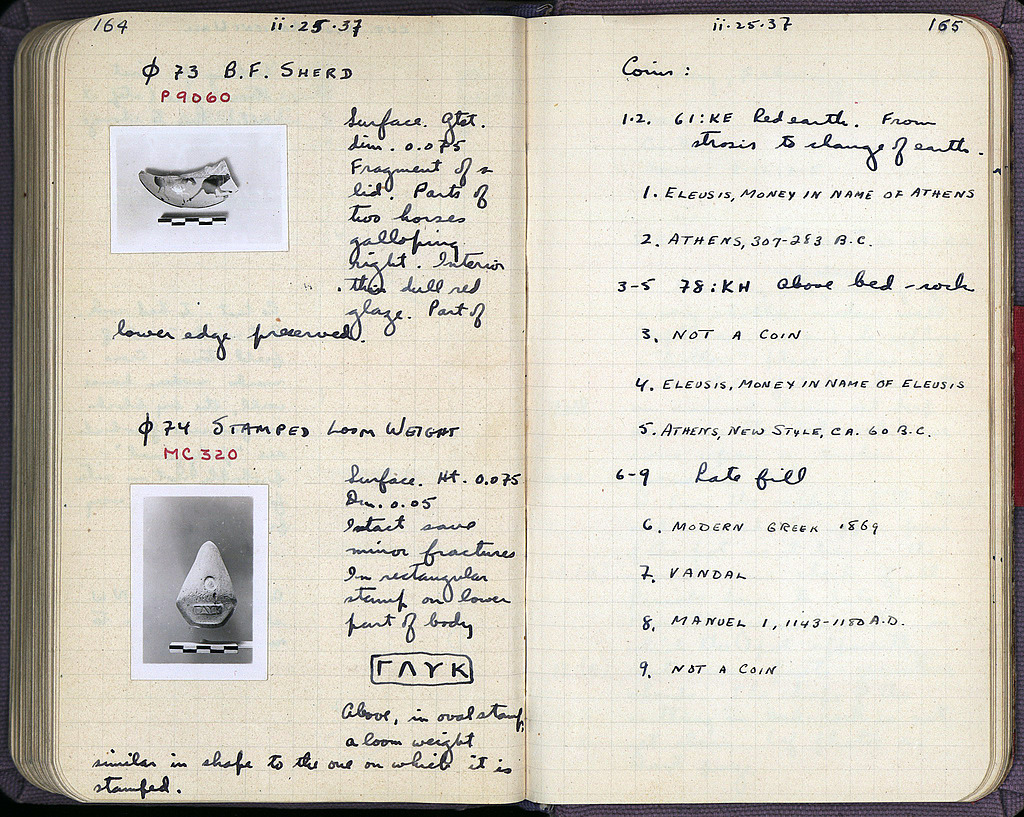 164 ii·25·37
φ 73 B.F. SHERD
P 9060
Surface. Gtst.
dim. 0.075
Fragment of a
lid. Parts of
two horses
galloping
right. Interior
thin dull red
glaze. Part of
lower edge preserved.
φ 74 STAMPED LOOM WEIGHT
MC 320
Surface. Ht. 0.075
Dm. 0.05
Intact save
minor fractures
In rectangular
stamp on lower
part of body
ΓΛΥΚ
Above, in oval stamp,
a loom weight
similar in shape to the one on which it is
stamped.
ii·25·37 165
Coins:
1-2. 61:KE Red earth. From
strosis to change of earth.
1. ELEUSIS, MONEY IN NAME OF ATHENS
2. ATHENS, 307-283 B.C.
3-5 78:KH Above bed-rock
3. NOT A COIN
4. ELEUSIS, MONEY IN NAME OF ELEUSIS
5. ATHENS, NEW STYLE, CA. 60 B.C.
6-9 Late fill
6. MODERN GREEK 1869
7. VANDAL
8. MANUEL 1, 1143-1180 A.D.
9. NOT A COIN